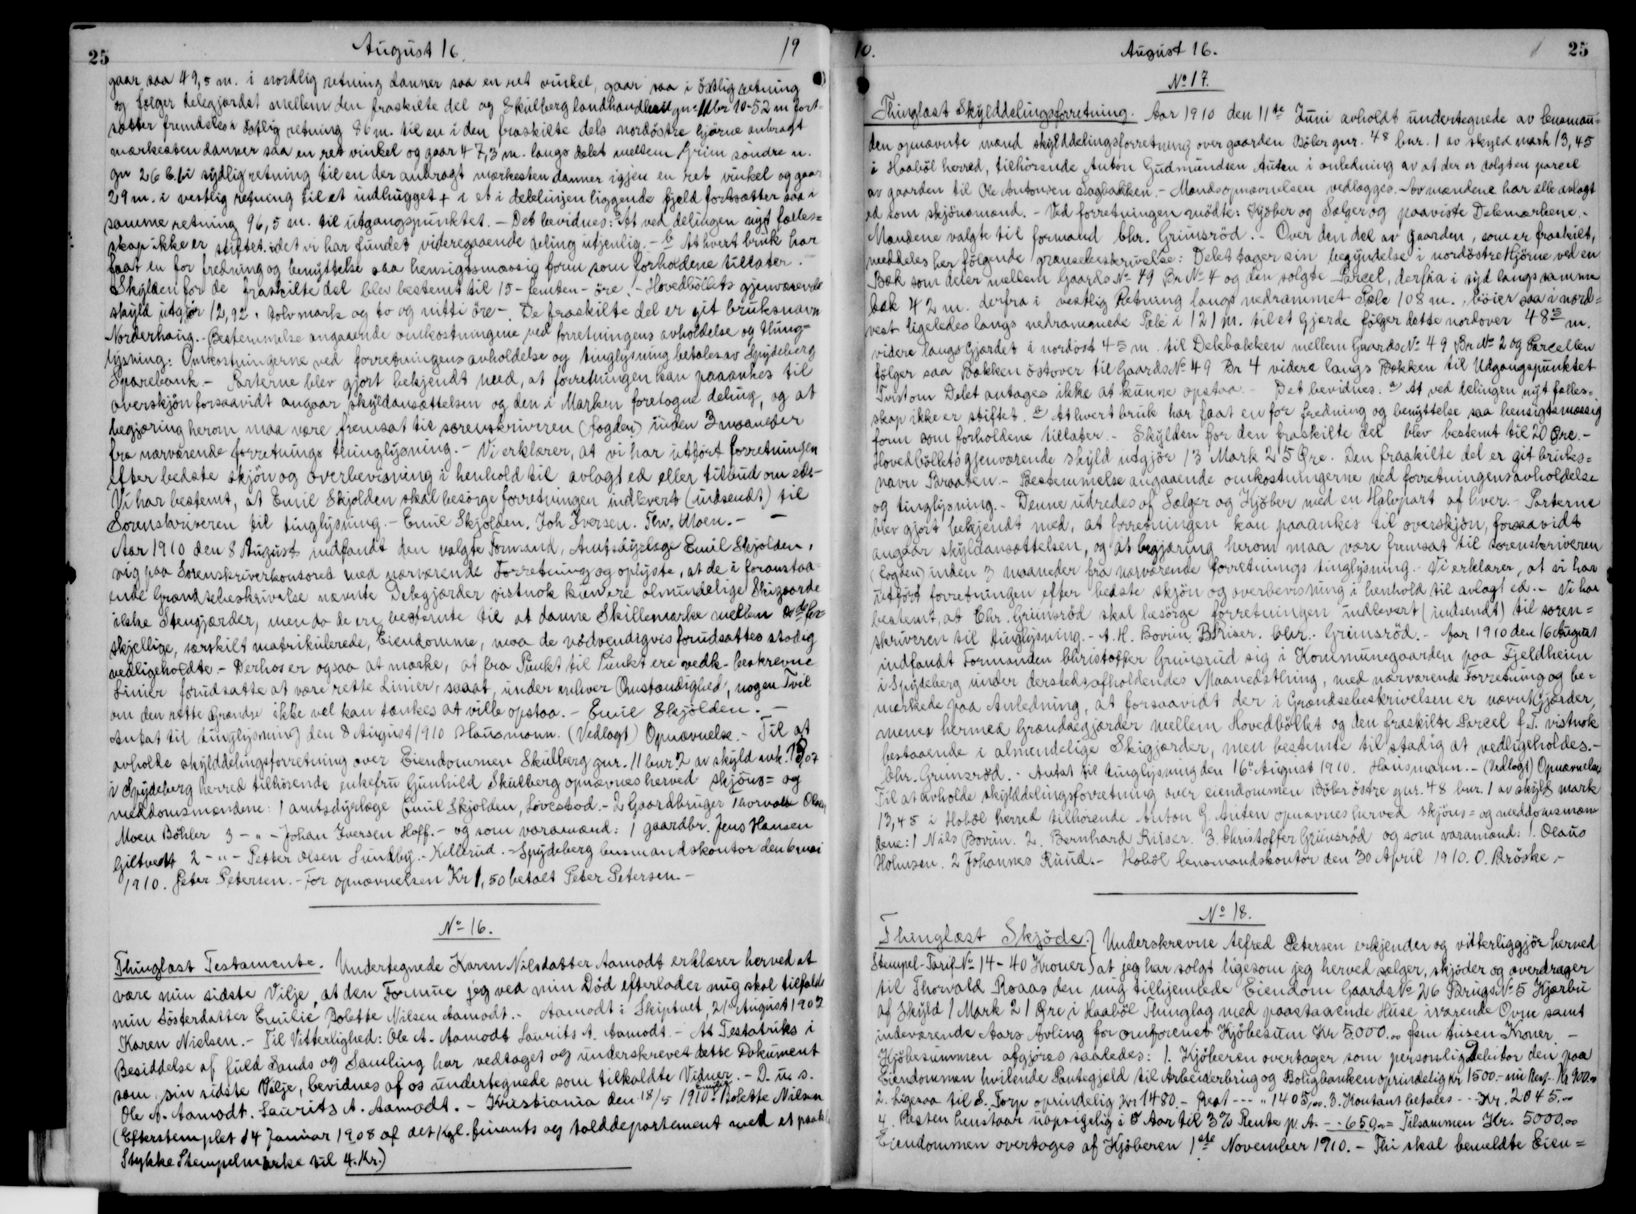 25
August 16.
19
gaar saa 49,5 m. i nordlig retning danner saa en ret vinkel, gaar saa i östlig retning
og følger delegjærdet mellem den fraskilte del og Skulberg landhandleri gnr. 11 br. 10 - 52 m fort-
sætter fremdeles i östlig retning 86 m. til en i den fraskilte dels nordöstre hjörne anbragt
merkesten danner saa en ret vinkel og gaar 47,3 m. langs delet mellem Grim söndre u.
gn 26 b. 1 i sydlig retning til en der anbragt merkesten danner igjen en ret vinkel og gaar
29 m. i vestlig retning til et indhugget + i et i delelinjen liggende fjeld fortsætter saa i
samme retning 96,5 m. til utgangspunktet. - Det bevidnes: At ved delingen nyt fælles=
skap ikke er stiftet idet vi har fundet videregaaende deling utjenlig. - At hvert bruk har
faat en for fredning og benyttelse saa hensigtsmæssig form som forholdene tillater. -
Skylden for de fraskilte del blev bestemt til 15 - femten - öre. - Hovedböllets gjenværende
skyld utgjör 12,92. tolv mark og to og nitti öre - De fraskilte del er git bruksnavn
Norderhaug. - Bestemmelse angaaende omkostningerne ved forretningens avholdelse og thing-
lysning: Omkostningerne ved forretningens avholdelse og tinglysning betales av Spydeberg
Sparebank. - Parterne blev gjort bekjendt med, at forretningen kan paaankes til
overskjön forsaavidt angaar skyldansættelsen og den i Marken foretogne deling, og at
begjæring herom maa være fremsat til sorenskriveren (fogden) inden 3 maaneder
fra nærværende forretnings thinglysning. - Vi erklærer, at vi har utfört forretningen
efter bedste skjön og overbevisning i henhold til avlagt ed eller tilbud om ed. -
Vi har bestemt, at Emil Skjolden skal besörge forretningen indlevert (indsendt) til
Sorenskriveren til tinglysning. - Emil Skjolden. Joh Iversen. Thv. Moen. -
Aar 1910 den 8 August indfandt den valgte Formand, Amtsdyrlæge Emil Skjolden,
sig paa Sorenskriverkontoret med nærværende Forretning og oplyste, at de i foranstaa-
ende Grændsebeskrivelse nævnte Delegjærder vistnok kun ere almindelige Skigaarde
ikke Stengjærder, men da de ere bestemte til at danne Skillemærke mellem de for-
skjellige, særskilt matrikulerede, Eiendomme, maa de nödvendigvis forudsættes stadig
vedligeholdte. - Derhos er ogsaa at mærke, at fra Punkt til Punkt ere vedk. beskrevne
Linier forudsatte at være rette Linier, saaat, under enhver Omstændighed, nogen Tvil
om den rette Grændse ikke vel kan tænkes at ville opstaa. - Emil Skjolden. -
Antat til tinglysning den 8 August 1910 Hausmann. (Vedlagt) Opnævnelse. - Til at
avholde skylddelingsforretning over Eiendommen Skulberg gnr. 11 bnr. 2 av skyld mk. 13,07
i Spydeberg herred tilhörende enkefru Gunhild Skulberg opnævnes herved skjöns= og
meddomsmændene: 1 amtsdyrlæge Emil Skjolden, Lövestad. - 2 Gaardbruger Thorvald Olsen
Moen Böhler 3 - " - Johan Iversen Hoff. - og som varamænd: 1 gaardbr. Jens Hansen
Giltvedt 2 - " - Petter Olsen Lundby. - Kellerud. - Spydeberg lensmandskontor den 6 mai
1910. Peter Petersen. - For opnævnelsen Kr 1,50 betalt Peter Petersen. -
No 16.
Thinglæst Testamente. Undertegnede Karen Nilsdatter Aamodt erklærer herved at
være min sidste Vilje, at den Formue jeg ved min Död efterlader mig skal tilfalde
min Sösterdatter Emilie Bolette Nilsen Aamodt. - Aamodt i Skiptvet, 21de August 1907
Karen Nielsen. - Til Vitterlighed: Ole A. Aamodt Laurits A. Aamodt. - At Testatriks i
Besiddelse af fuld Sands og Samling har vedtaget og underskrevet dette Dokument
som sin sidste Vilje, bevidnes af os undertegnede som tilkaldte Vidner. - D. u. s.
Ole A. Aamodt. Laurits A. Aamodt. - Kristiania den 18/5 1910. Emilie Bolette Nilsen
(Efterstemplet 14 Januar 1908 af det kgl. finants og tolddepartement med et paaklæbet
Stykke Stempelmærke til 4. Kr.)
10.
August 16.
25
No 17.
Thinglæst Skylddelingsforretning. Aar 1910 den 11te Juni avholdt undertegnede av lensman=
den opnævnte mænd skylddelingsforretning over gaarden Böler gnr. 48 bnr. 1 av skyld mark 13,45
i Haaböl herred, tilhörende Anton Gudmundsen Auten i anledning av at der er solgt en parcel
av gaarden til Ole Antonsen Sagbakken. - Mandsopnævnelsen vedlægges. - Lovmændene har alle avlagt
ed som skjönsmænd. - Ved forretningen mödte: Kjöber og Sælger og paaviste Delemærkene. -
Mændene valgte til formand Chr. Grimsröd. - Over den del av gaarden, som er fraskilt,
meddeles her fölgende grænsebeskrivelse: Delet tager sin begyndelse i nordöstre Hjörne ved en
Bæk som deler mellem Gaards No 49 Br. No 4 og den solgte Parcel, derfra i syd langs samme
bæk 42 m. derfra i vestlig Retning langs nedrammet Pæle 108 m. böier saa i nord=
vest ligeledes langs nedrammede Pæle i 121 m. til et Gjærde fölger dette nordover 48 m.
videre langs Gjærdet i nordöst 45 m. til Delebækken mellem Gaards No 49 Br No 2 og Parcellen
fölger saa Bækken östover til Gaards No 49 Br 4 videre langs Bækken til Udgangspunktet
Tvist om Delet antages ikke at kunne opstaa. - Det bevidnes. At ved delingen nyt fælles=
skap ikke er stiftet. At hvert bruk har faat en for fredning og benyttelse saa hensigtsmæssig
form som forholdene tillater. - Skylden for den fraskilte del blev bestemt til 20 Öre. -
Hovedböllets gjenværende skyld utgjör 13 Mark 25 Öre. Den fraskilte del er git bruks=
navn Braaten. - Bestemmelse angaaende omkostningerne ved forretningens avholdelse
og tinglysning. - Denne udredes af Sælger og Kjöber med en Halvpart af hver. - Parterne
blev gjort bekjendt med, at forretningen kan paaankes til overskjön, forsaavidt
angaar skyldansættelsen, og at begjæring herom maa være fremsat til sorenskriveren
(fogden) inden 3 maaneder fra nærværende forretnings tinglysning. Vi erklærer, at vi har
utfört forretningen efter bedste skjön og overbevisning i henhold til avlagt ed. - Vi har
bestemt, at Chr. Grimsröd skal besörge forretningen indlevert (indsendt) til soren=
skriveren til tinglysning. - A. H. Bovim. B Riser. Chr. Grimsröd. - Aar 1910 den 16 August
indfandt Formanden Christoffer Grimsrud sig i Kommunegaarden paa Fjeldheim
i Spydeberg under dersteds afholdendes Maanedsthing, med nærværende Forretning og be=
mærkede paa Anledning, at forsaavidt der i Grændsebeskrivelsen er nævnt Gjærder,
menes hermed Grændsegjærder mellem Hovedböllet og den fraskilte Parcel f. T. vistnok
bestaaende i almindelige Skigjærder, men bestemte til stadig at vedligeholdes. -
Chr. Grimsröd. - Antat til tinglysning den 16de August 1910. Hausmann. - (Vedlagt) Opnævnelse
Til at avholde skylddelingsforretning over eiendommen Böler östre gnr. 48 bnr. 1 av skyld mark
13,45 i Hoböl herred tilhörende Anton G. Auten opnævnes herved skjöns= og meddomsmæn-
dene: 1 Nils Bovim. 2. Bernhard Riiser. 3. Christoffer Grimsröd og som varamænd: 1. Olaus
Holmsen. 2 Johannes Ruud. - Hoböl lensmandskontor den 30 April 1910. O. Bröske. -
No 18.
Thinglæst Skjöde.) Underskrevne Alfred Petersen erkjender og vitterliggjör herved
Stempel-Tarif No 14 - 40 Kroner) at jeg har solgt ligesom jeg herved sælger, skjöder og overdrager
til Thorvald Roaas den mig tilhjemlede Eiendom Gaards No 26 Brugs No 5 Kjærbu
af Skyld 1 Mark 21 Öre i Haaböl Thinglag med paastaaende Huse iværende Ovne samt
indeværende Aars Avling for omforenet Kjöbesum Kr 5000.00 fem tusen Kroner. -
Kjöbesummen afgjöres saaledes: 1. Kjöberen overtager som personlig Debitor den paa
Eiendommen hvilende Pantegjæld til Arbeiderbrug og Boligbanken oprindelig Kr. 1500. - nu Rest. Kr 900.00
2. Ligesaa til E. Torp oprindelig Kr 1480 - Rest - - - " 1405,00. 3. Kontant betales - - Kr. 2045.00
4. Resten henstaar uopsigelig i 5 Aar til 3% Rente p. A. - - 650.00 = Tilsammen Kr. 5000.00
Eiendommen overtages af Kjöberen 1ste November 1910. - Thi skal bemeldte Eien=